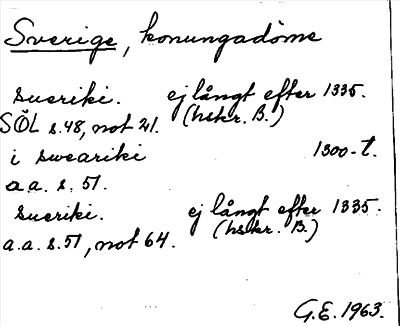 Sverige, konungadöme
sueriki. ej långt efter 1335.
SÖL s. 48, not 21. (hskr. B.)
i sweariki 1300-t.
a.a. s. 51.
sueriki. ej långt efter 1335.
a.a. s. 51, not 64. (hskr. B.)
G.E. 1963.